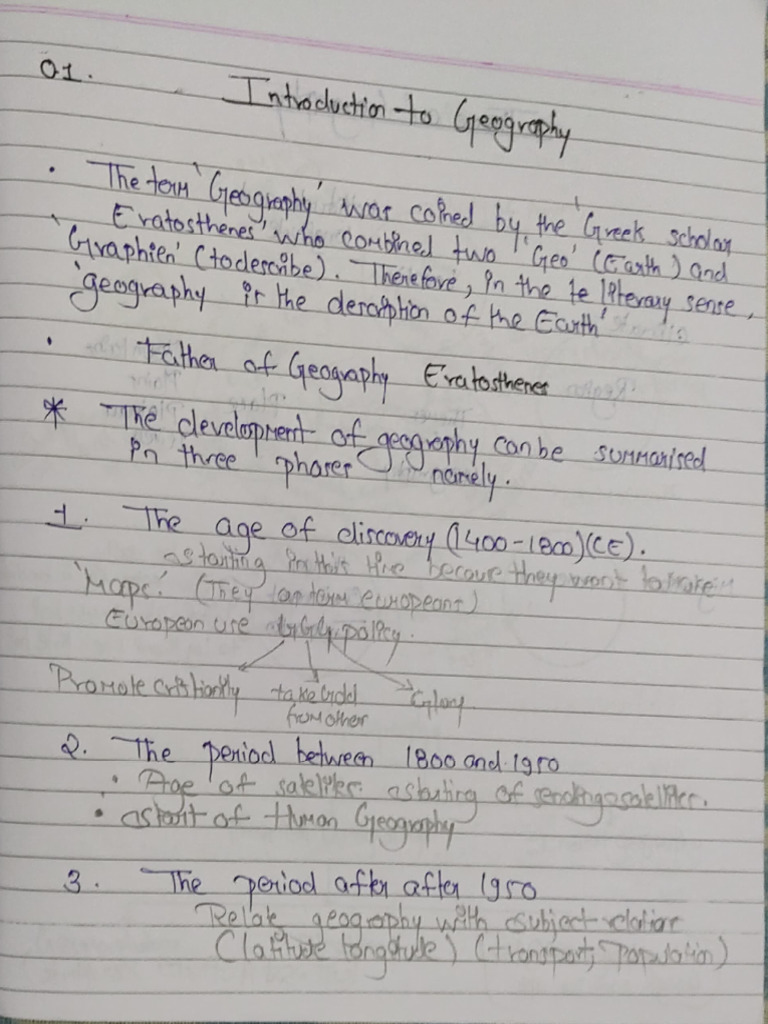 01. Introduction to Geography
• The term 'Geography' was coined by the 'Greek scholar
Eratosthenes' who combined two 'Geo' (Earth) and
'Graphien' (to describe). Therefore, in the te literary sense,
'geography is the description of the Earth'
• Father of Geography Eratosthenes
* The development of geography can be summarised
in three phases namely.
1. The age of discovery (1400-1800)(CE).
starting in this time because they want to
'Maps'. (They european)
European use policy.
Promote take Gold Glory
from other
2. The period between 1800 and 1950
• Age of starting of sending
• start of Human Geography
3. The period after after 1950
Relate geography with subject relation
(latitude longitude) (transport, population)